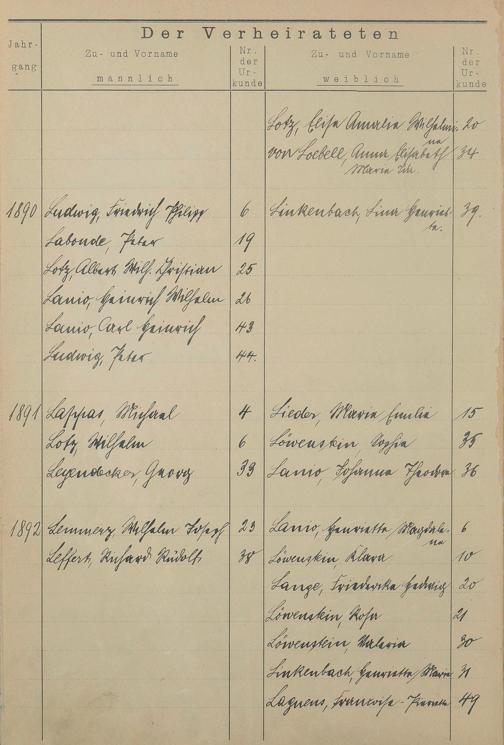 Der Verheirateten
Jahr-
gang
Zu- und Vorname
männlich
Nr.
der
Ur-
kunde
Zu- und Vorname
weiblich
Nr.
der
Ur-
kunde
Lotz, Elise Amalie Wilhelmi- 20
ne
von Loebell, Anna Elisabeth 34
Marie
1890 Ludwig, Friedrich Philipp 6 Linkenbach, Lina Henriet- 39.
te.
Labonde, Peter 19
Lotz, Albert Wilh. Christian 25
Lanio, Heinrich Wilhelm 26
Lanio, Carl Heinrich 43
Ludwig, Peter 44.
1891 Lappas, Michael 4 Lieder, Marie Emilie 15
Lotz, Wilhelm 6 Löwenstein, Sophie 35
Legendecker, Georg 39 Lanio, Johanna Theodora 36
1892 Lemmerz, Wilhelm Joseph 23 Lanio, Henriette Magdale- 6
ne
Leffert, Richard Rudolf 38 Löwenstein Klara 10
Lange, Friedericke Hedwig 20
Löwenstein, Rosa 21
Löwenstein, Valeria 30
Linkenbach, Henriette Marie 31
Lagnens, Francoise - Pierrette 49